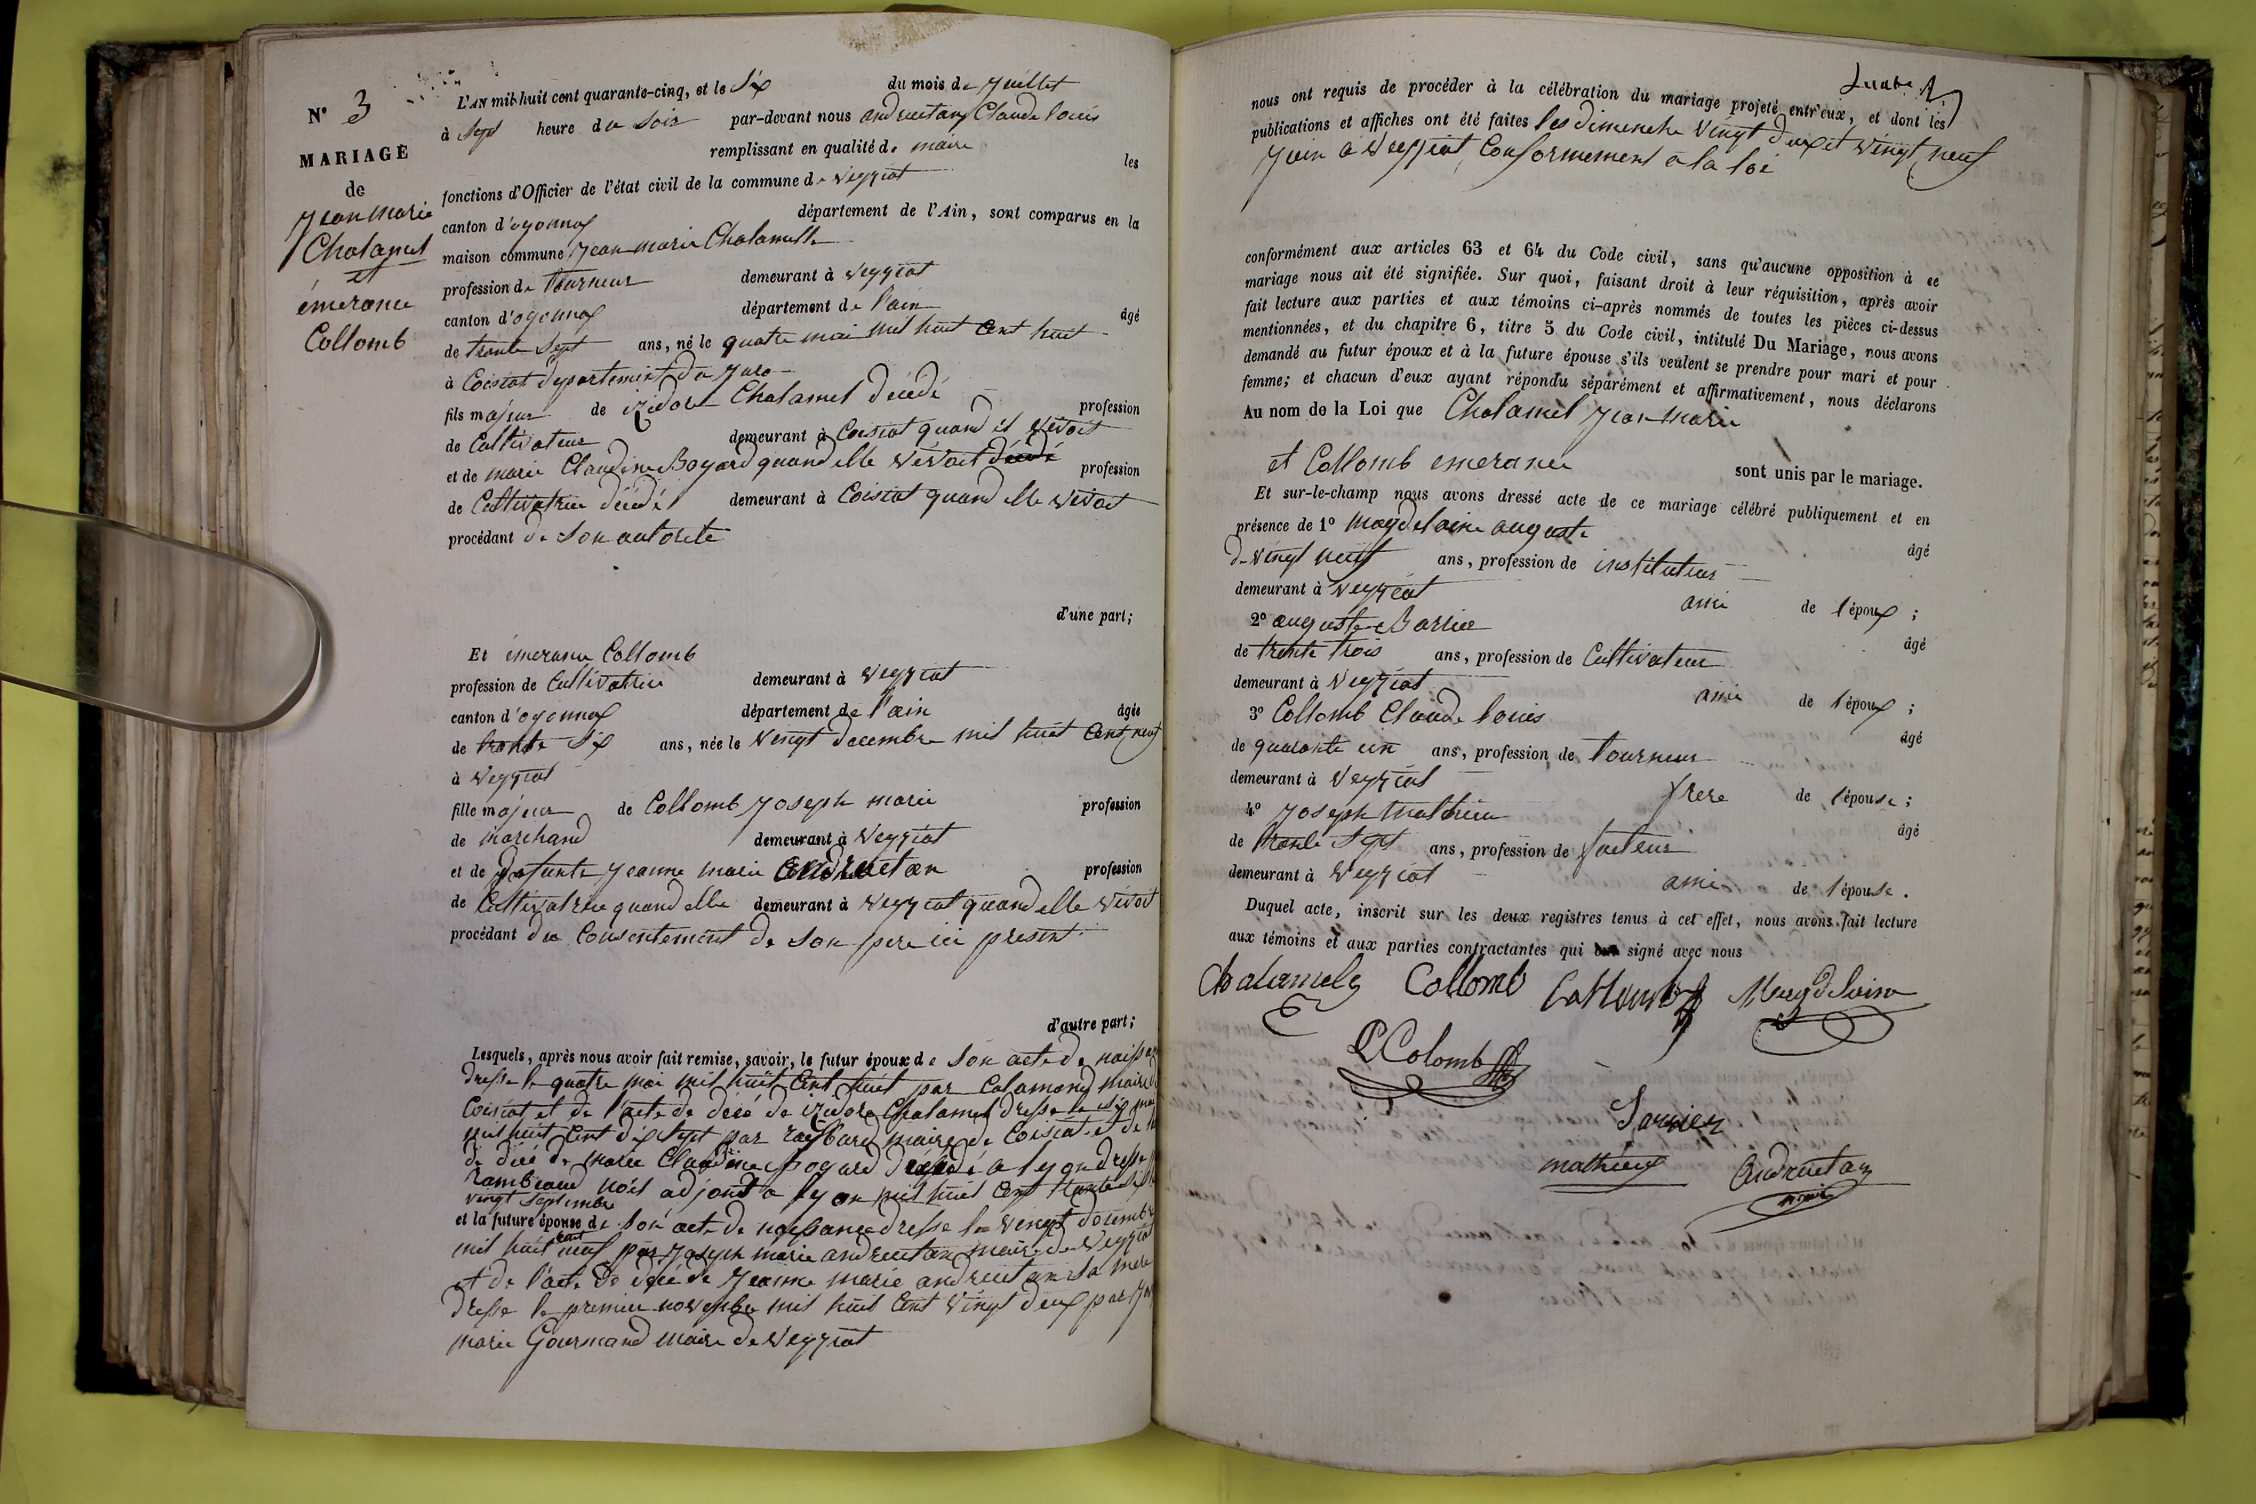 N° 3
MARIAGE
de
Jean Marie
Chalamel
et
émerance
Collomb
L'AN mil huit cent quarante-cinq, et le Six du mois de Juillet
à Sept heure du Soir par-devant nous andruetan Claude louis
remplissant en qualité de maire les
fonctions d'Officier de l'état civil de la commune de Veyziat
canton d'oyonnax département de l'Ain, sont comparus en la
maison commune Jean marie Chalamelle
profession de tourneur demeurant à Veyziat
canton d'oyonnax département de l'ain âgé
de trente Sept ans, né le quatre mai mil huit Cent huit
à Coisiat département du Jura
fils majeur de izidore Chalamel décédé profession
de Cultivateur demeurant à Coisiat quand il vivoit
et de marie Claudine Bogard quand elle vivoit décédé profession
de Cultivatrice décédé demeurant à Coisiat quand elle vivoit
procédant de Son autorite
d'une part;
Et émerance Collomb
profession de Cultivatrice demeurant à Veyziat
canton d'oyonnax département de l'ain âgée
de trente Six ans, née le Vingt decembre mil huit Cent neuf
à Veyziat
fille majeur de Collomb Joseph marie profession
de marchand demeurant à Veyziat
et de defunte Jeanne marie andruetan profession
de Cultivatrice quand elle demeurant à Veyziat quand elle vivoit
procédant du Consentement de Son pere ici present
d'autre part;
Lesquels, après nous avoir fait remise, savoir, le futur époux de Son acte de
dresse le quatre mai mil huit Cent huit par Calamand maire
Coisiat et de l'acte de décé de izidore Chalamel dresse le Six
mil huit Cent dix Sept par maire de Coisiat et de
de décé de Marie Claudine Bogard décédé a lyon dresse
Rambeaud adjoint a lyon mil huit Cent trente
vingt Septembre
et la future épouse de Son acte de naissance dresse le Vingt decembre
mil huit cent neuf par Joseph marie andruetan maire de Veyziat
et de l'acte de décé de Jeanne marie andruetan Sa mere
dresse le premier novembre mil huit Cent Vingt deux par
marie Gourmand maire de Veyziat
nous ont requis de procéder à la célébration du mariage projeté entr'eux, et dont les
publications et affiches ont été faites les dimenche Vingt deux et Vingt neuf
Juin a Veyziat Conformement a la loi
conformément aux articles 63 et 64 du Code civil, sans qu'aucune opposition à ce
mariage nous ait été signifiée. Sur quoi, faisant droit à leur réquisition, après avoir
fait lecture aux parties et aux témoins ci-après nommés de toutes les pièces ci-dessus
mentionnées, et du chapitre 6, titre 5 du Code civil, intitulé Du Mariage, nous avons
demandé au futur époux et à la future épouse s'ils veulent se prendre pour mari et pour
femme; et chacun d'eux ayant répondu séparément et affirmativement, nous déclarons
Au nom de la Loi que Chalamel Jean Marie
et Collomb emerance sont unis par le mariage.
Et sur-le-champ nous avons dressé acte de ce mariage célébré publiquement et en
présence de 1° Magdelaine auguste âgé
de Vingt neuf ans, profession de instituteur
demeurant à Veyziat ami de l'époux ;
2° auguste Barrier âgé
de trente trois ans, profession de Cultivateur
demeurant à Veyziat ami de l'époux ;
3° Collomb Claude louis âgé
de quarante un ans, profession de tourneur
demeurant à Veyziat frere de l'épouse ;
4° Joseph Mathieu âgé
de trente Sept ans, profession de facteur
demeurant à Veyziat ami de l'épouse .
Duquel acte, inscrit sur les deux registres tenus à cet effet, nous avons fait lecture
aux témoins et aux parties contractantes qui ont signé avec nous
Chalamel Collomb Collomb Magdelaine
Colomb
mathieu Andruetan
maire